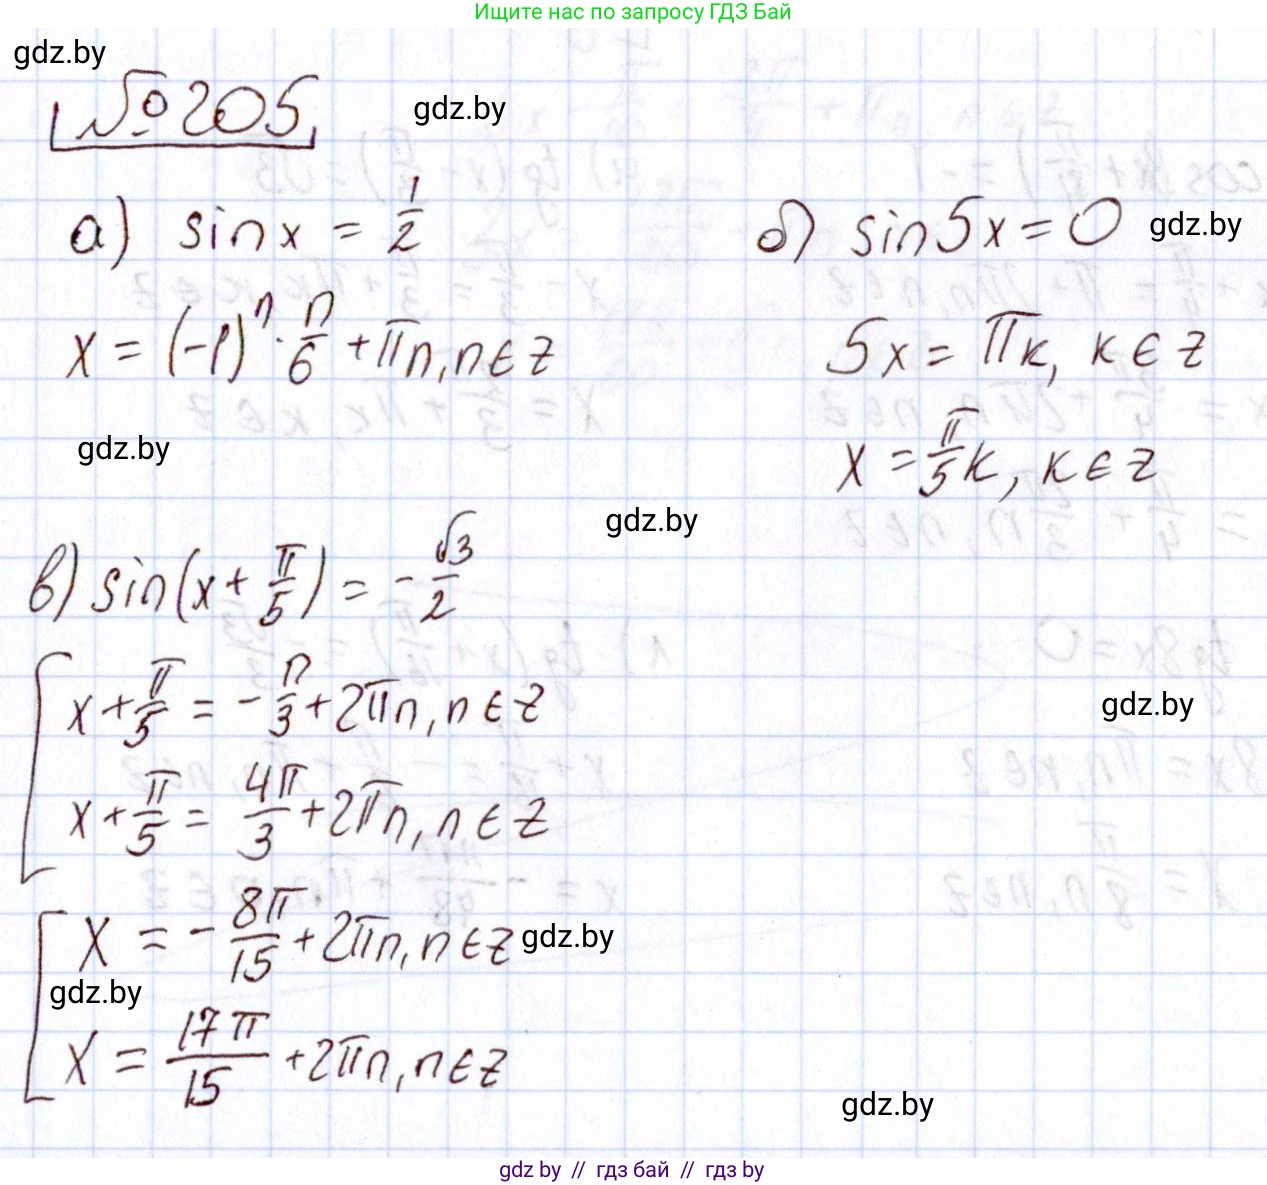 Ищите нас по запросу ГДЗ Бай
gdz.by
№205
gdz.by
а) sin x = 1/2
x = (-1)^n · π/6 + πn, n ∈ z
gdz.by
б) sin 5x = 0
gdz.by
5x = πk, k ∈ z
x = π/5 k, k ∈ z
gdz.by
в) sin(x + π/5) = - √3/2
[ x + π/5 = - π/3 + 2πn, n ∈ z
gdz.by
x + π/5 = 4π/3 + 2πn, n ∈ z
[ x = - 8π/15 + 2πn, n ∈ z
gdz.by
gdz.by
x = 17π/15 + 2πn, n ∈ z
gdz.by
gdz by // гдз бай // гдз by